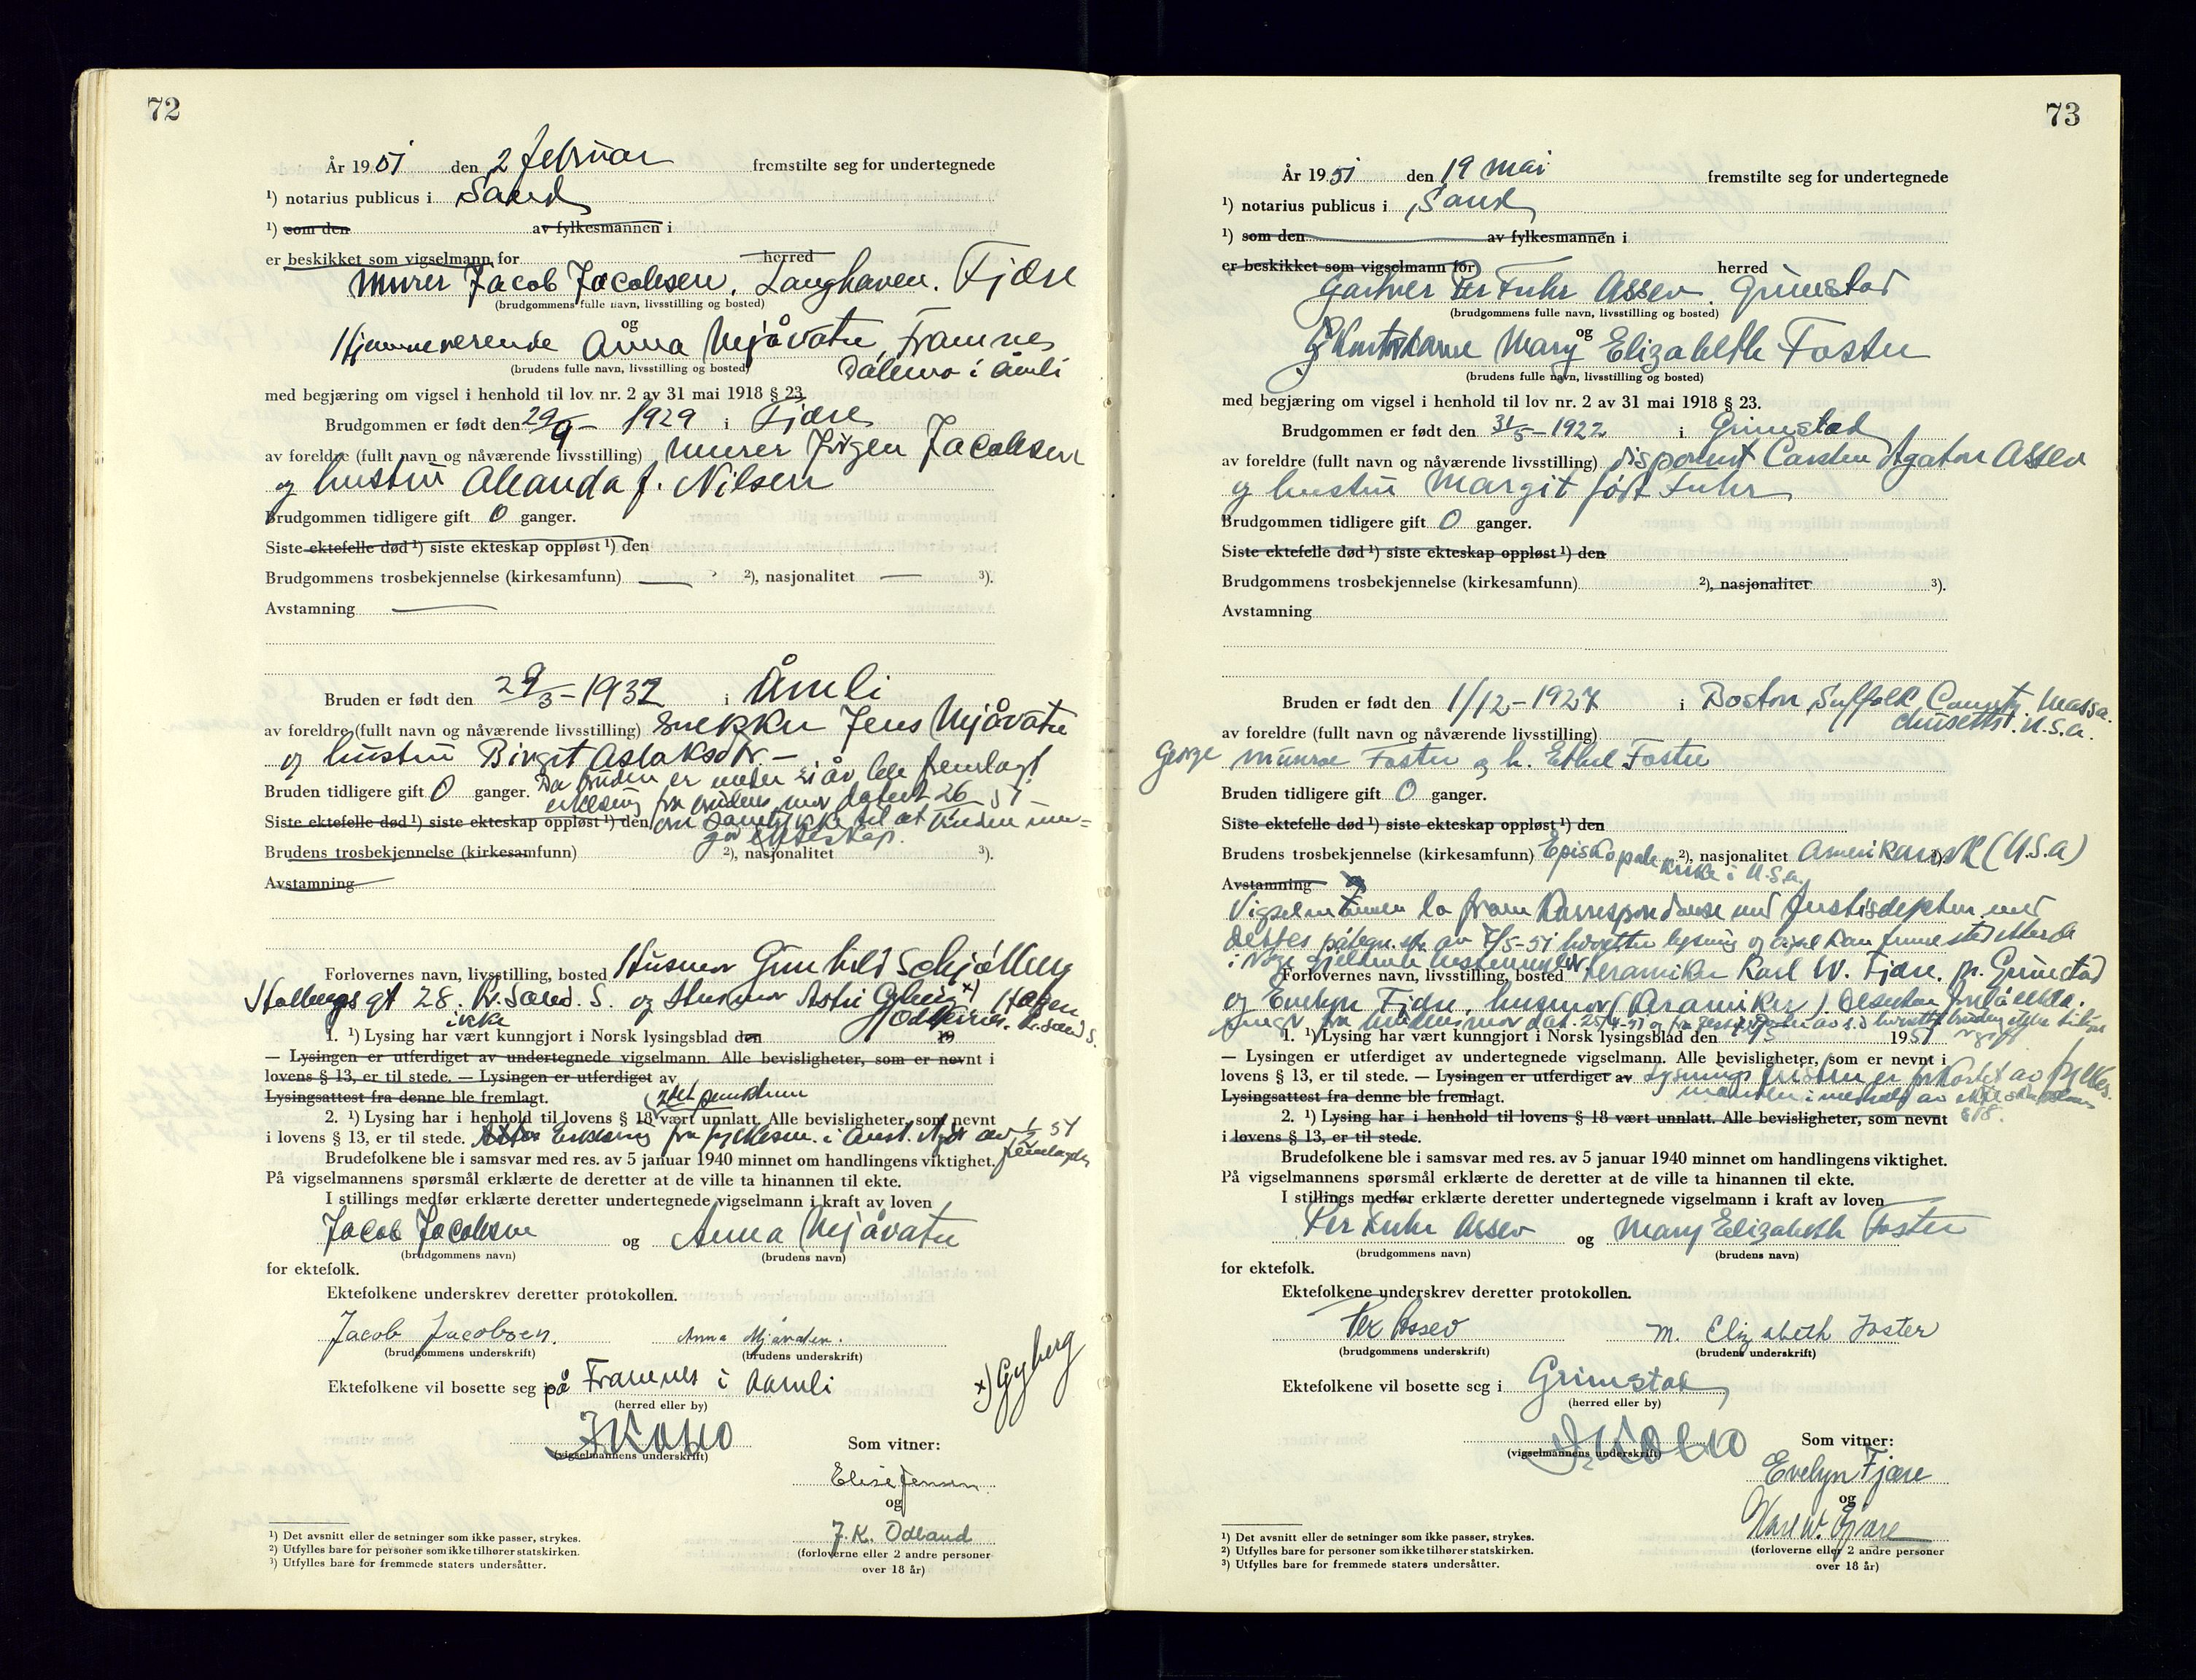 72
År 1951 den 2 februar fremstilte seg for undertegnede
¹) notarius publicus i Sand
¹) som den av fylkesmannen i
er beskikket som vigselmann for herred
Murer Jacob Jacobsen, Langhaven, Fjære
(brudgommens fulle navn, livsstilling og bosted)
og
Hjemmeværende Anna Mjåvatn, Framnes
(brudens fulle navn, livsstilling og bosted) Dølemo i Åmli
med begjæring om vigsel i henhold til lov nr. 2 av 31 mai 1918 § 23.
Brudgommen er født den 29/9 - 1929 i Fjære
av foreldre (fullt navn og nåværende livsstilling) murer Jørgen Jacobsen
og hustru Amanda f. Nilsen
Brudgommen tidligere gift 0 ganger.
Siste ektefelle død ¹) siste ekteskap oppløst ¹) den
Brudgommens trosbekjennelse (kirkesamfunn) — ²), nasjonalitet — ³).
Avstamning —
Bruden er født den 29/3 - 1932 i Åmli
av foreldre (fullt navn og nåværende livsstilling) snekker Jens Mjåvatn
og hustru Birgit Aslaksdtr. -
Bruden tidligere gift 0 ganger. Da bruden er under 21 år ble fremlagt
erklæring fra brudens mor datert 26 51
Siste ektefelle død ¹) siste ekteskap oppløst ¹) den om samtykke til at bruden inn-
går ekteskap.
Brudens trosbekjennelse (kirkesamfunn) ²), nasjonalitet ³).
Avstamning
Forlovernes navn, livsstilling, bosted Husmor Gunhild Schjølberg
gt 28. Kr.sand. S. og Husmor Astri x) Hagen
Kr.sand S.
ikke
1. ¹) Lysing har vært kunngjort i Norsk lysingsblad den 19
— Lysingen er utferdiget av undertegnede vigselmann. Alle bevisligheter, som er nevnt i
lovens § 13, er til stede. — Lysingen er utferdiget av
Lysingsattest fra denne ble fremlagt.
(2det punktum
2. ¹) Lysing har i henhold til lovens § 18 vært unnlatt. Alle bevisligheter, som nevnt
i lovens § 13, er til stede. Erklæring fra fylkesm. i Aust. Agder av 1/2 51
fremlagdes
Brudefolkene ble i samsvar med res. av 5 januar 1940 minnet om handlingens viktighet.
På vigselmannens spørsmål erklærte de deretter at de ville ta hinannen til ekte.
I stillings medfør erklærte deretter undertegnede vigselmann i kraft av loven
Jacob Jacobsen og Anna Mjåvatn
(brudgommens navn) (brudens navn)
for ektefolk.
Ektefolkene underskrev deretter protokollen.
Jacob Jacobsen. Anna Mjåvatn.
(brudgommens underskrift) (brudens underskrift)
x) Gyberg
Ektefolkene vil bosette seg på Framnes i Aamli
(herred eller by)
(vigselmannens underskrift)
Som vitner:
Elise Jensen
og
J. K. Odland
(forloverne eller 2 andre personer
over 18 år)
¹) Det avsnitt eller de setninger som ikke passer, strykes.
²) Utfylles bare for personer som ikke tilhører statskirken.
³) Utfylles bare for fremmede staters undersåtter.
73
År 1951 den 19 mai fremstilte seg for undertegnede
¹) notarius publicus i Sand
¹) som den av fylkesmannen i
er beskikket som vigselmann for herred
Gartner Per Fuhr Assev. Grimstad
(brudgommens fulle navn, livsstilling og bosted)
og
Mary Elizabeth Foster
(brudens fulle navn, livsstilling og bosted)
med begjæring om vigsel i henhold til lov nr. 2 av 31 mai 1918 § 23.
Brudgommen er født den 31/5 - 1922 i Grimstad
av foreldre (fullt navn og nåværende livsstilling) disponent Carsten Agaton Assev
og hustru Margit født Fuhr
Brudgommen tidligere gift 0 ganger.
Siste ektefelle død ¹) siste ekteskap oppløst ¹) den
Brudgommens trosbekjennelse (kirkesamfunn) ²), nasjonalitet ³).
Avstamning
Bruden er født den 1/12 - 1927 i Boston, Suffolk County, Massa-
chusetts. U.S.A.
av foreldre (fullt navn og nåværende livsstilling)
George Munroe Foster og h. Ethel Foster
Bruden tidligere gift 0 ganger.
Siste ektefelle død ¹) siste ekteskap oppløst ¹) den
Brudens trosbekjennelse (kirkesamfunn) Episkopale ²), nasjonalitet Amerikansk (U.S.A)
kirke i U.S.A.
Avstamning
Vigselmannen la fram korrespondanse med Justisdeptm. med
dettes påtegn. av 8/5-51 hvoretter lysning og vigsel kan finne sted etter de
i Norge gjeldende bestemmelser.
Forlovernes navn, livsstilling, bosted keramiker Karl W. Fjære. pr. Grimstad
og Evelyn Fjære, husmor (keramiker)
fra brudens mor dat. 25/4-51 og fra
1. ¹) Lysing har vært kunngjort i Norsk lysingsblad den 1951
— Lysingen er utferdiget av undertegnede vigselmann. Alle bevisligheter, som er nevnt i
lovens § 13, er til stede. — Lysingen er utferdiget av Lysnings fristen er forkortet av fylkes-
mannen i medhold av
Lysingsattest fra denne ble fremlagt.
§ 18.
2. ¹) Lysing har i henhold til lovens § 18 vært unnlatt. Alle bevisligheter, som nevnt
i lovens § 13, er til stede.
Brudefolkene ble i samsvar med res. av 5 januar 1940 minnet om handlingens viktighet.
På vigselmannens spørsmål erklærte de deretter at de ville ta hinannen til ekte.
I stillings medfør erklærte deretter undertegnede vigselmann i kraft av loven
Per Fuhr Assev og Mary Elizabeth Foster
(brudgommens navn) (brudens navn)
for ektefolk.
Ektefolkene underskrev deretter protokollen.
Per Assev M. Elizabeth Foster
(brudgommens underskrift) (brudens underskrift)
Ektefolkene vil bosette seg i Grimstad
(herred eller by)
(vigselmannens underskrift)
Som vitner:
Evelyn Fjære
og
Karl W. Fjære
(forloverne eller 2 andre personer
over 18 år)
¹) Det avsnitt eller de setninger som ikke passer, strykes.
²) Utfylles bare for personer som ikke tilhører statskirken.
³) Utfylles bare for fremmede staters undersåtter.